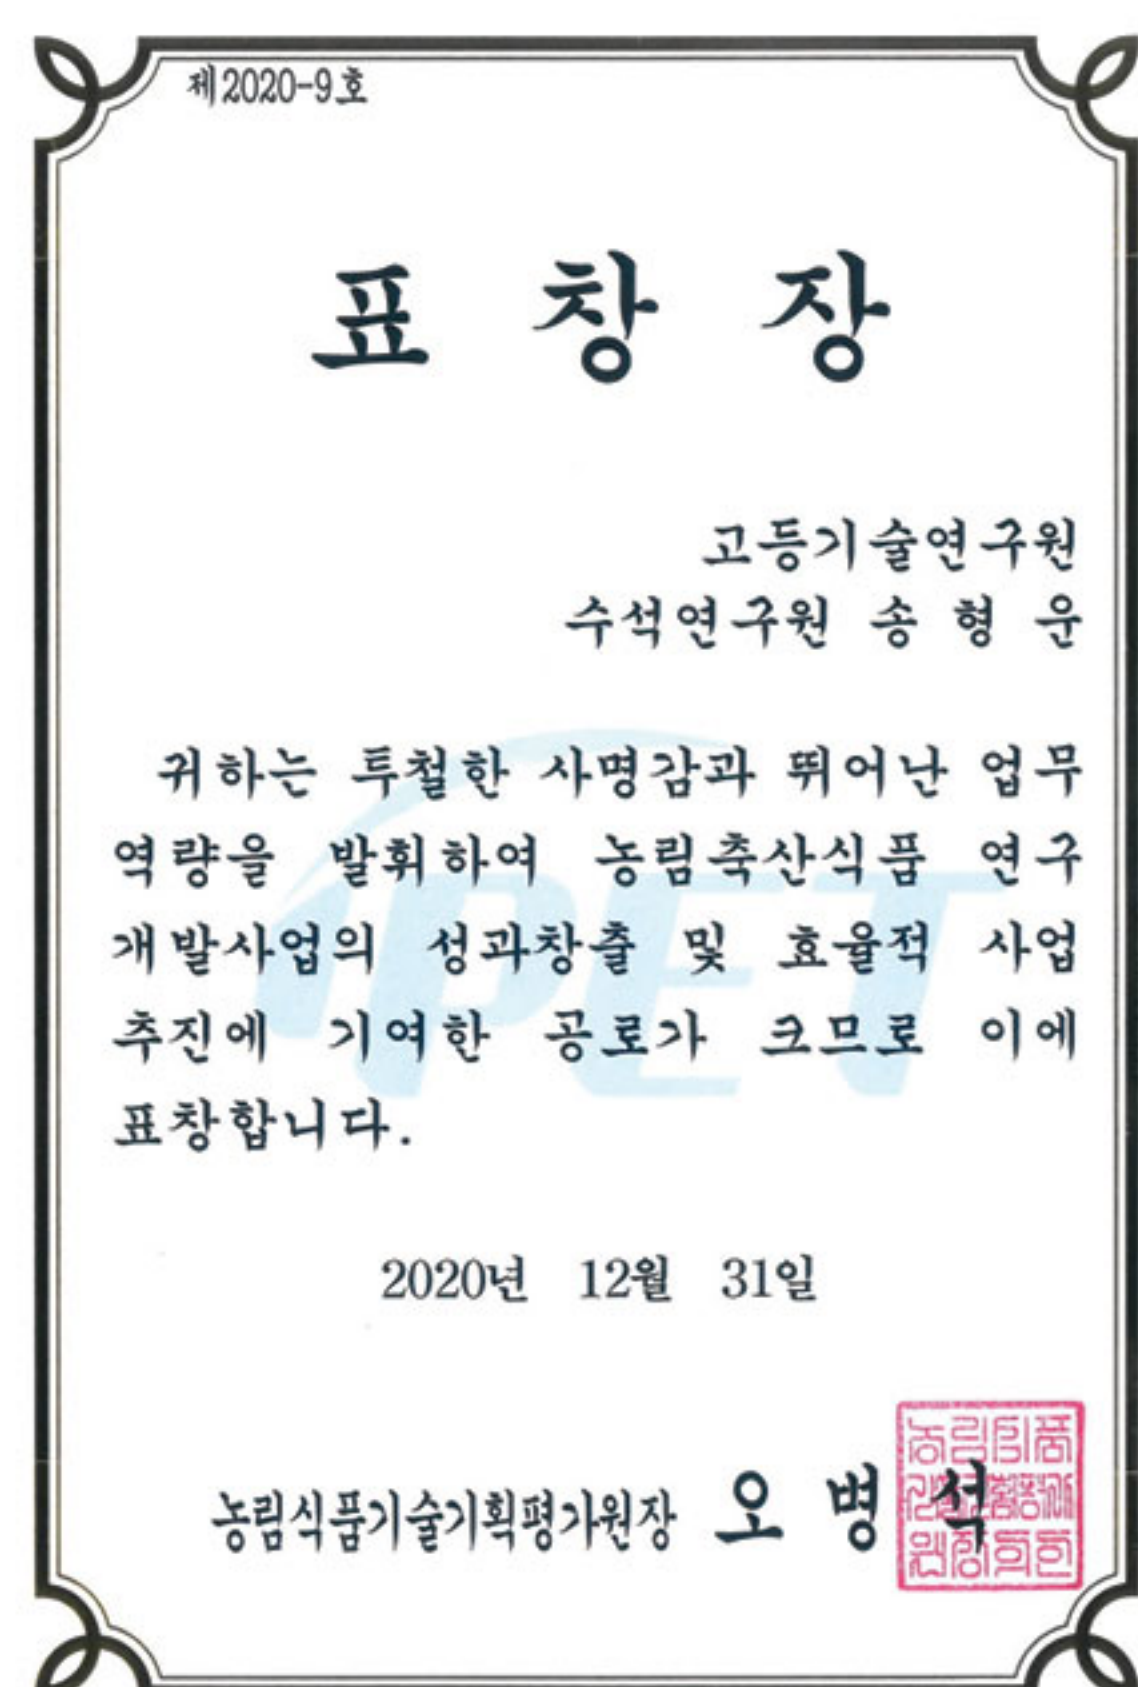 제2020-9호
표 창 장
고등기술연구원
수석연구원 송 형 운
귀하는 투철한 사명감과 뛰어난 업무
역량을 발휘하여 농림축산식품 연구
개발사업의 성과창출 및 효율적 사업
추진에 기여한 공로가 크므로 이에
표창합니다.
IPET
2020년 12월 31일
농림식품기술기획평가원장 오 병 석